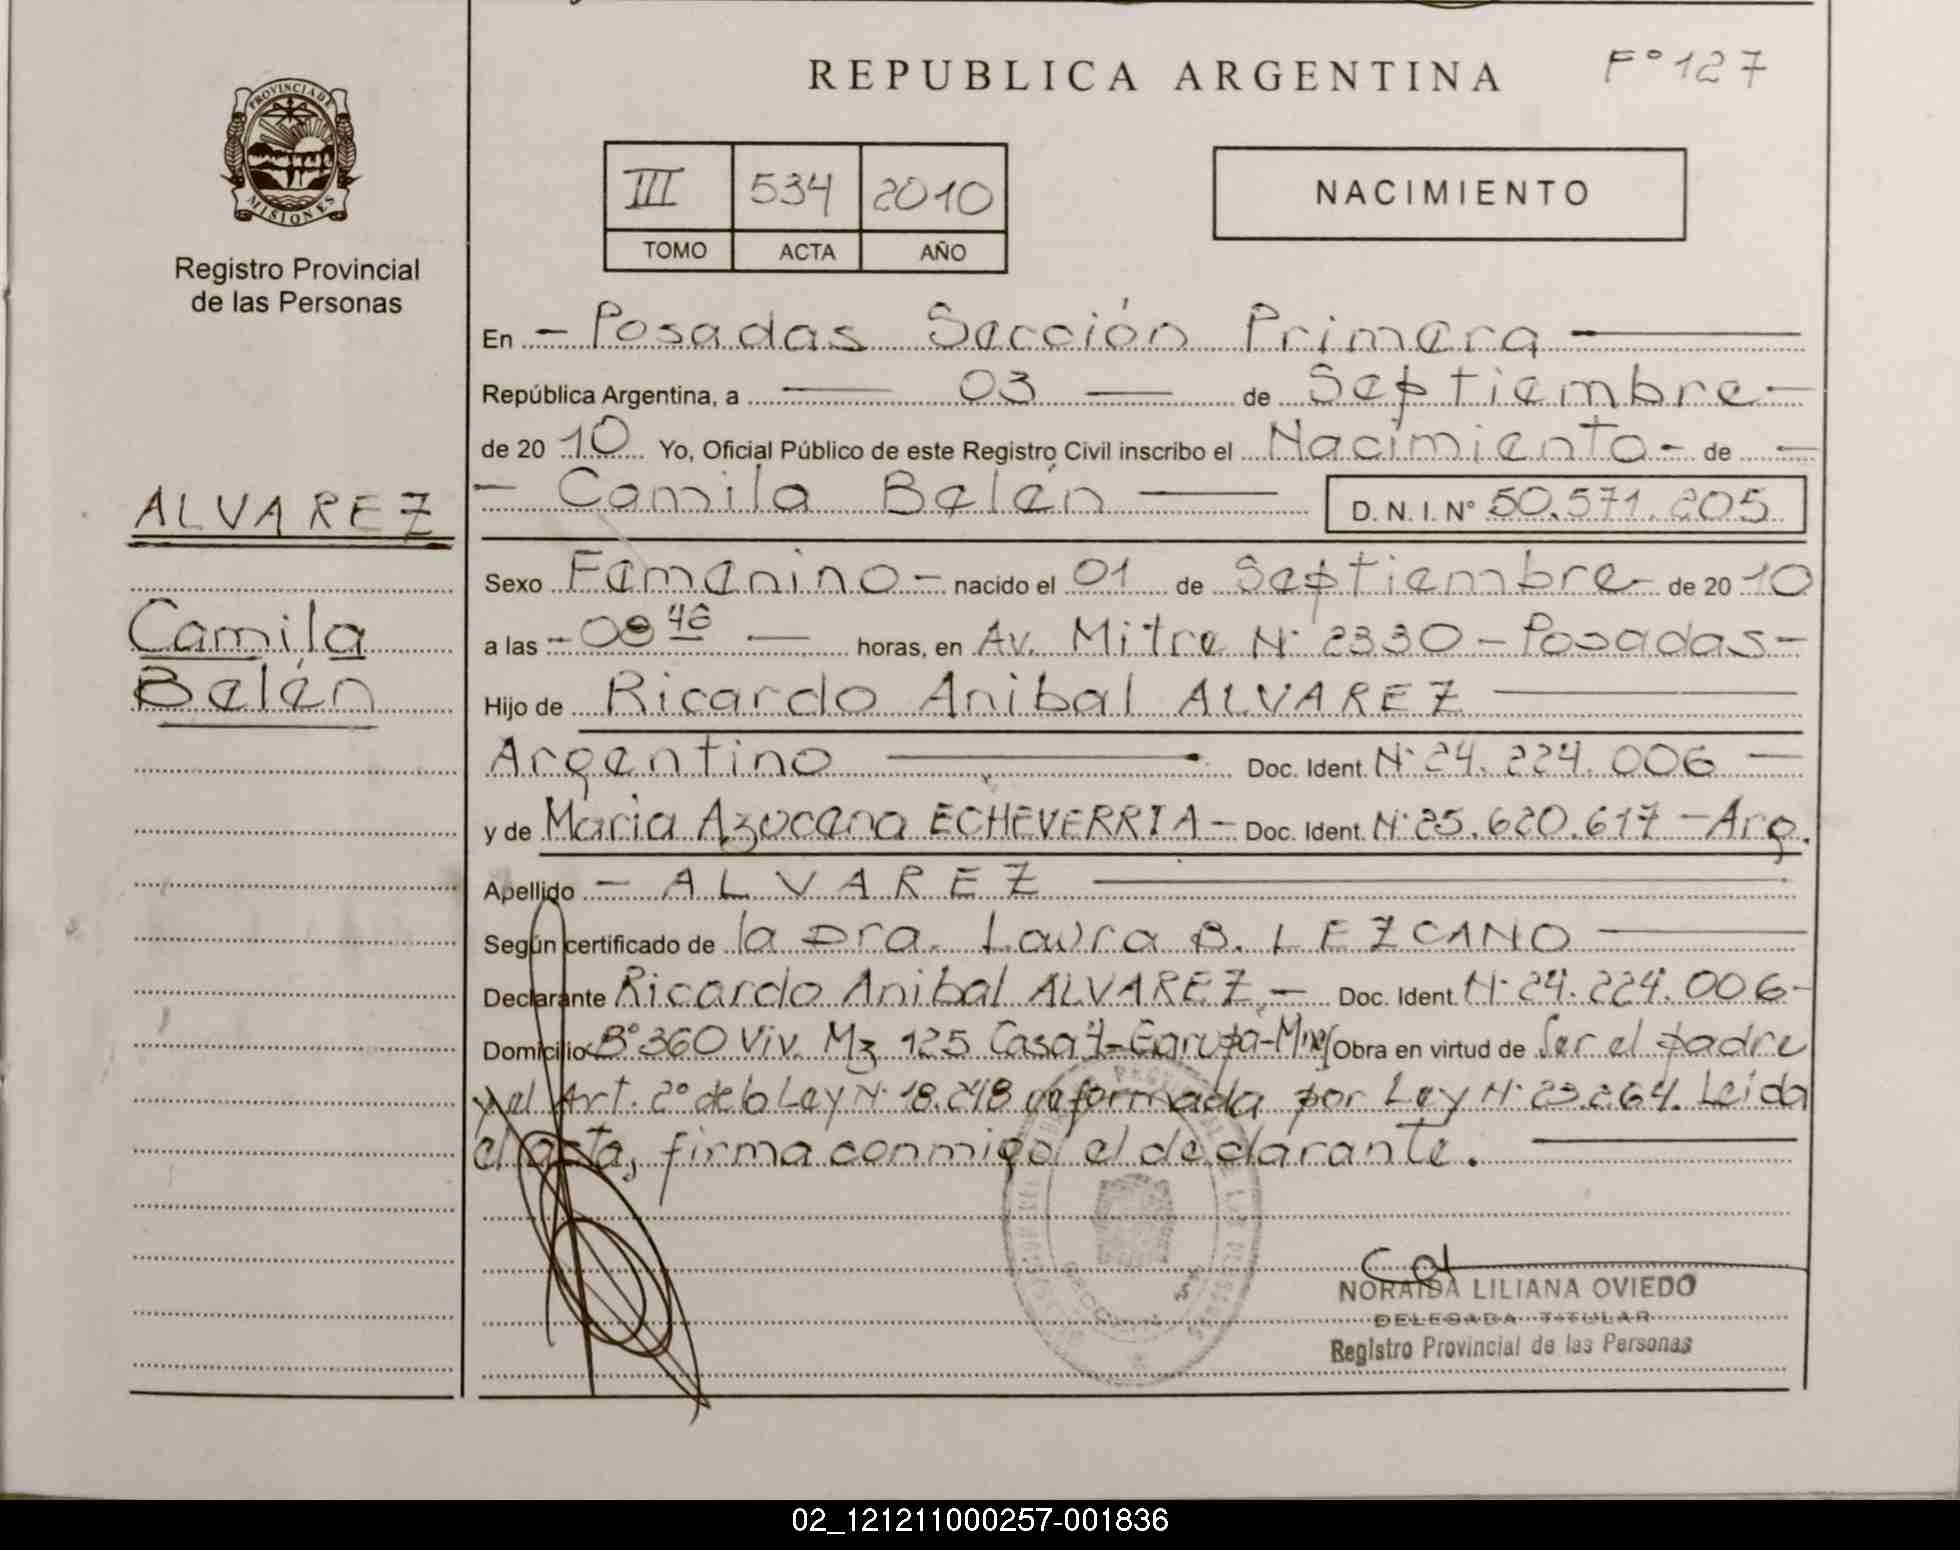 REPUBLICA ARGENTINA
Fº 127
PROVINCIA DE
MISIONES
Registro Provincial
de las Personas
III 534 2010
TOMO ACTA AÑO
NACIMIENTO
En - Posadas Sección Primera
República Argentina, a 03 de Septiembre -
de 20 10 Yo, Oficial Público de este Registro Civil inscribo el Nacimiento - de -
- Camila Belén D. N. I. Nº 50.571.205
ALVAREZ
Camila
Belén
Sexo Femenino - nacido el 01 de Septiembre - de 20 10
a las - 08 horas, en Av. Mitre Nº 2330 - Posadas -
Hijo de Ricardo Anibal ALVAREZ
Argentino Doc. Ident. Nº 24.224.006
y de Maria Azucena ECHEVERRIA - Doc. Ident. Nº 25.620.617 - Arg.
Apellido - ALVAREZ
Según certificado de la Dra. Laura B. LEZCANO
Declarante Ricardo Anibal ALVAREZ - Doc. Ident. Nº 24.224.006 -
Domicilio Bº 360 Viv. Mz 125 Casa Garupa - Obra en virtud de Ser el padre
y el Art. 2º de la Ley Nº 18.248 reformada por Ley Nº 23.264. Leida
el acta, firma conmigo el declarante.
NORAIDA LILIANA OVIEDO
DELEGADA TITULAR
Registro Provincial de las Personas
02_121211000257-001836